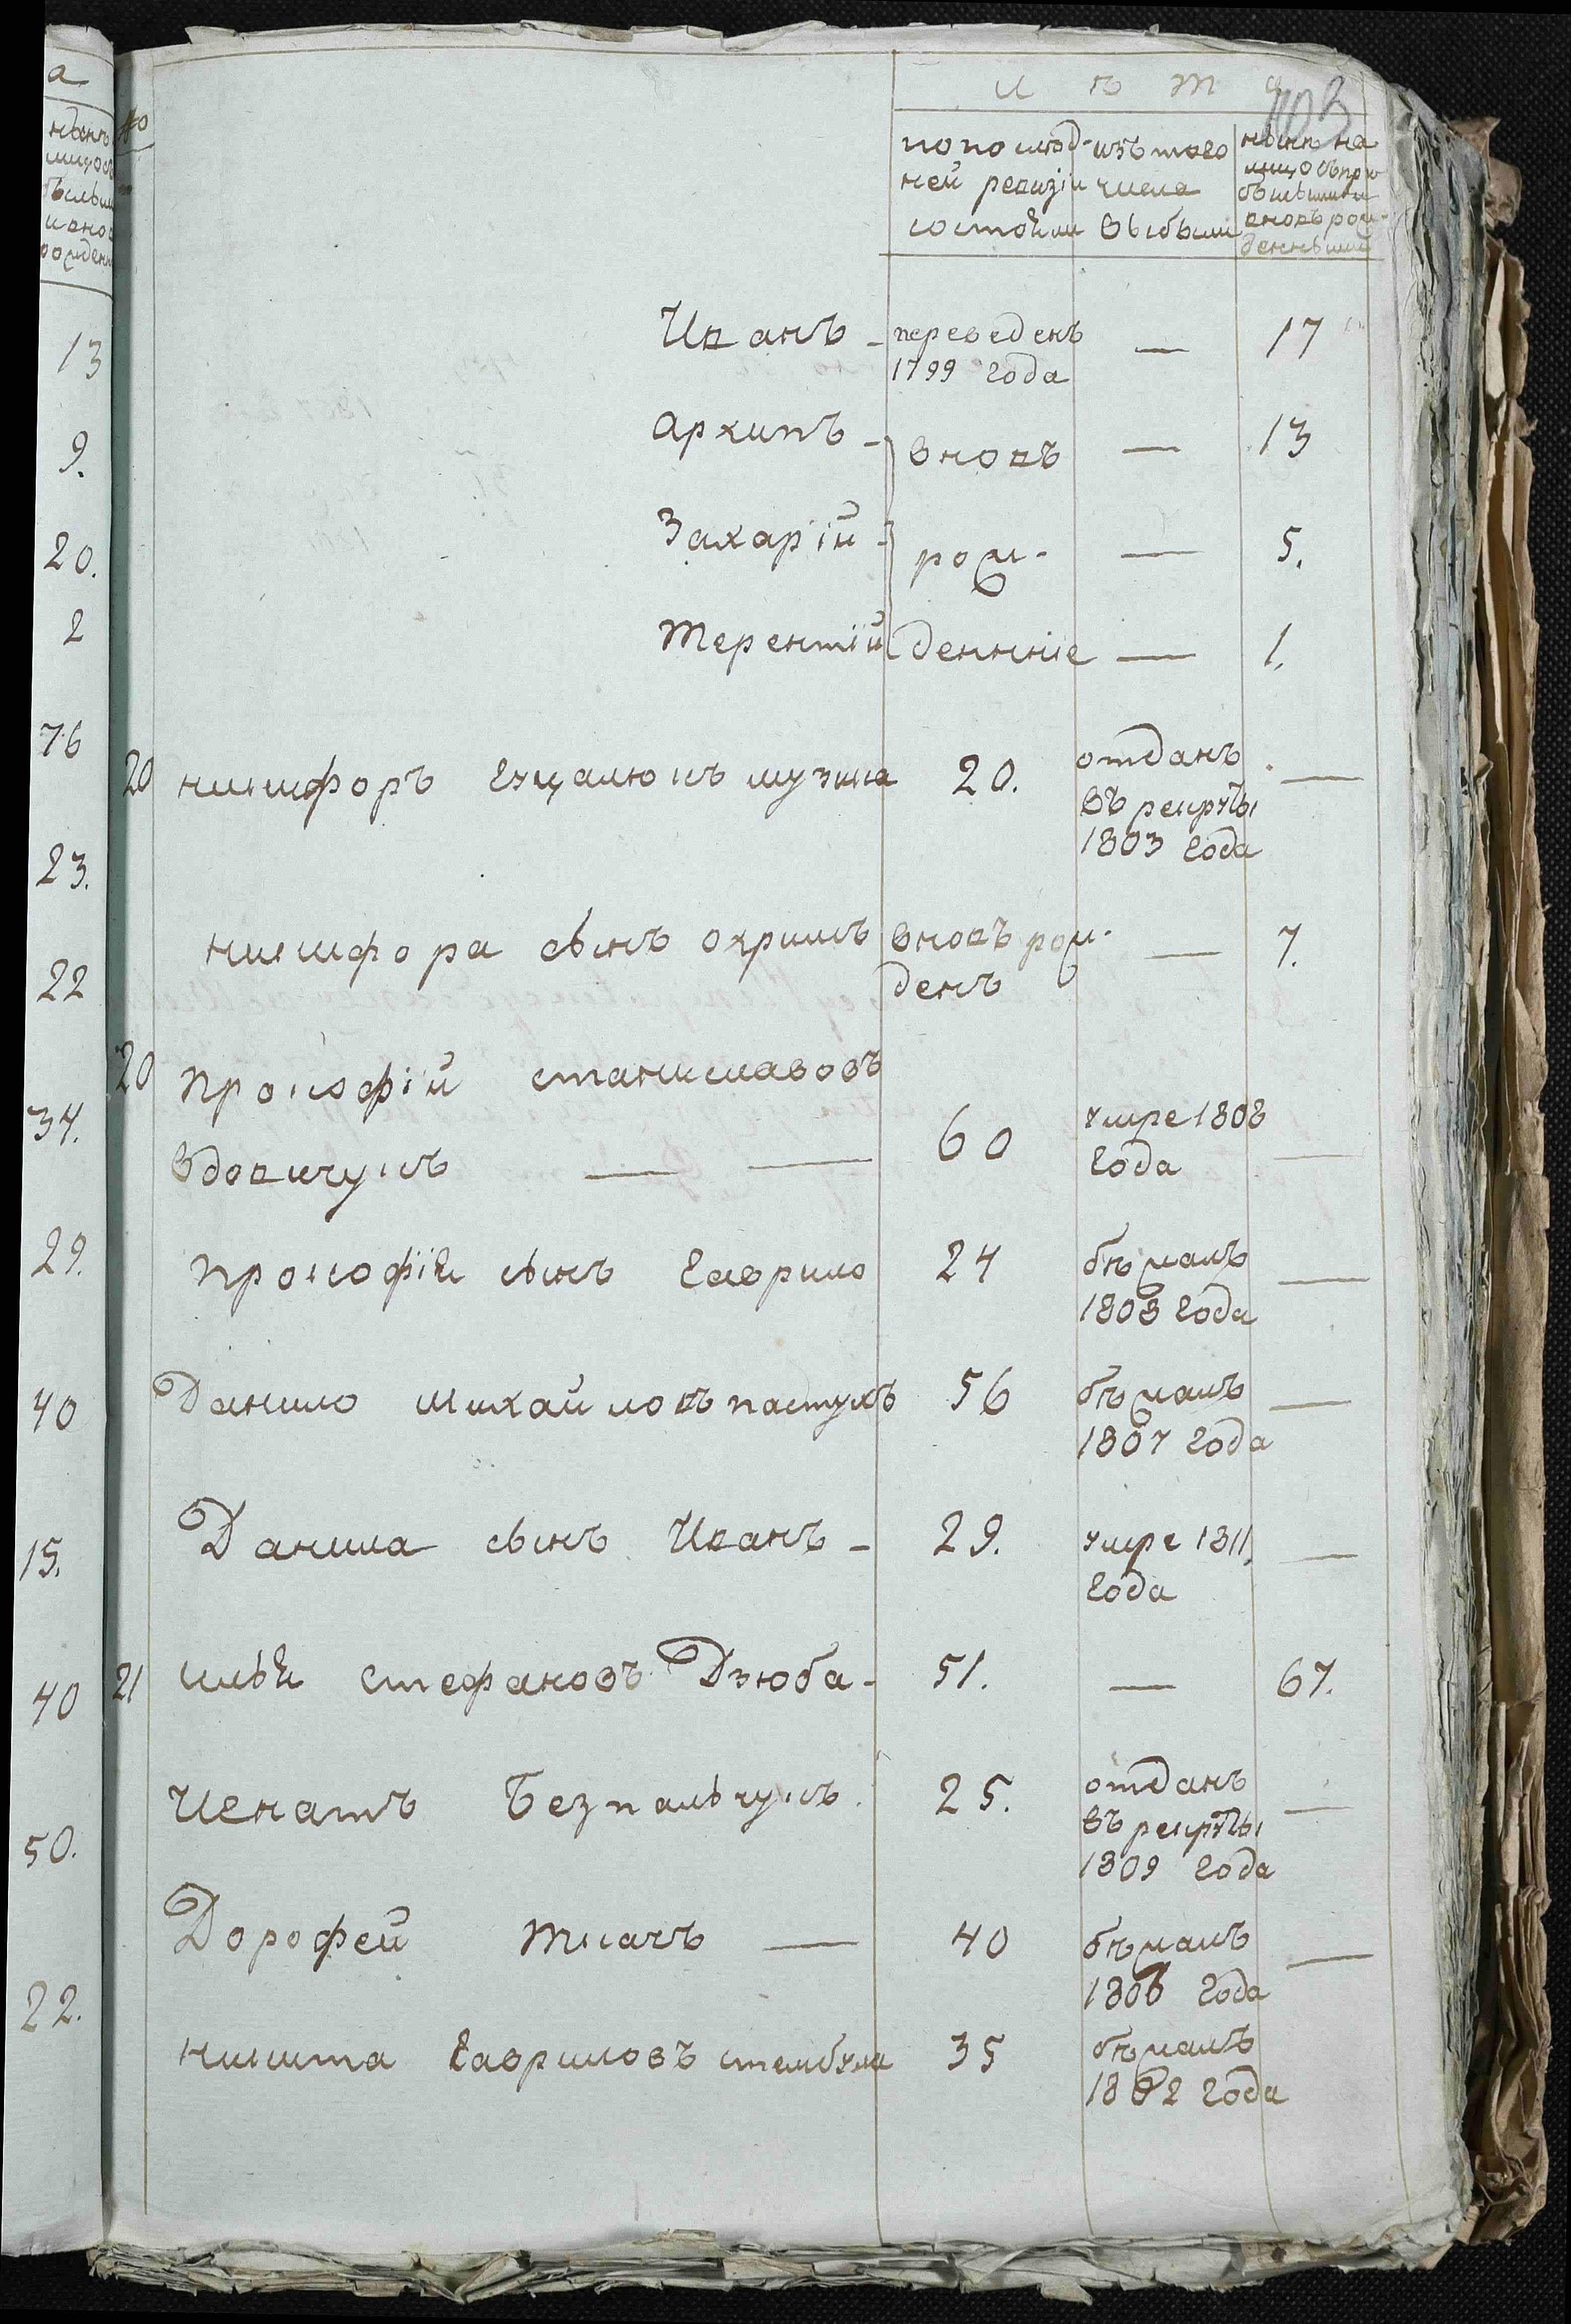 а
13
9.
20.
2
76
23.
22
34.
29.
40
15.
40
50.
22.
№
лѣта
103
по послѣд- изъ того нынѣ на
ней ревизіи числа лицо съ при
состояли выбыли былыми и
вновь рож-
денными
Иванъ - переведенъ — 17
1799 года
Архипъ - вновь — 13
Захарій - рож- — 5.
Терентій денніе — 1.
20 Никифоръ Гуцалюкъ музика 20. отданъ —
въ рекруты
1803 года
Никифора сынъ Охримъ вновь рож- — 7.
денъ
20 Прокофій Станиславовъ
Вдовичукъ — — 60 умре 1808 —
года
Прокофія сынъ Гаврило 24 бѣжалъ —
1808 года
Данило Михайловъ пастухъ 56 бѣжалъ —
1807 года
Данила сынъ Иванъ - 29. умре 1811 —
года
21 Илья Стефановъ Дзюба - 51. — 67.
Игнатъ Безпальчукъ. 25. отданъ —
въ рекруты
1809 года
Дорофей Ткачъ — 40 бѣжалъ —
1806 года
Никита Гавриловъ 35 бѣжалъ
1802 года